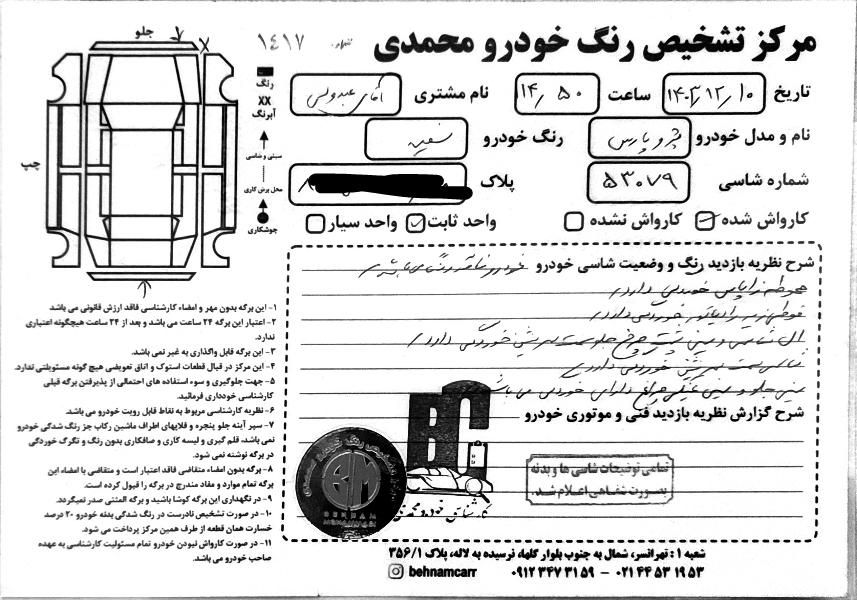 مرکز تشخیص رنگ خودرو محمدی
شماره ۱۴۱۷
تاریخ ۱۴۰۲/۱۲/۱۰ ساعت ۱۴/۵۰ نام مشتری آقای
نام و مدل خودرو پژو پارس رنگ خودرو سفید
شماره شاسی ۵۳۰۷۹ پلاک
کارواش شده کارواش نشده واحد ثابت واحد سیار
جلو
چپ
رنگ
XX
آبرنگ
سینی و شاسی
محل برش کاری
جوشکاری
شرح نظریه بازدید رنگ و وضعیت شاسی خودرو خودرو فاقد رنگ می باشد
خوردگی دارد
قوطی زیر رادیاتور خوردگی دارد
شاسی و سینی پشت چراغ جلو سمت خوردگی دارد
شاسی سمت خوردگی دارد
سینی جلو و سینی چراغ دارای خوردگی می باشد
شرح گزارش نظریه بازدید فنی و موتوری خودرو
BC
BM
BEHNAM
تمامی توضیحات شاسی ها و بدنه
بصورت شفاهی اعلام شد.
کارشناسی خودرو محمدی
۱- این برگه بدون مهر و امضاء کارشناسی فاقد ارزش قانونی می باشد
۲- اعتبار این برگه ۲۴ ساعت می باشد و بعد از ۲۴ ساعت هیچگونه اعتباری
ندارد.
۳- این برگه قابل واگذاری به غیر نمی باشد.
۴- این مرکز در قبال قطعات استوک و اتاق تعویضی هیچ گونه مسئولیتی ندارد.
۵- جهت جلوگیری و سوء استفاده های احتمالی از پذیرفتن برگه قبلی
کارشناسی خودداری فرمائید.
۶- نظریه کارشناسی مربوط به نقاط قابل رویت خودرو می باشد.
۷- سپر آینه جلو پنجره و قلابهای اطراف ماشین رکاب جز رنگ شدگی خودرو
نمی باشد، قلم گیری و لیسه کاری و صافکاری بدون رنگ و تگرگ خوردگی
در برگه نوشته نمی شود.
۸- برگه بدون امضاء متقاضی فاقد اعتبار است و متقاضی با امضاء این
برگه تمام موارد و مفاد مندرج در برگه را قبول کرده است.
۹- در نگهداری این برگه کوشا باشید و برگه المثنی صدر نمیگردد.
۱۰- در صورت تشخیص نادرست در رنگ شدگی بدنه خودرو ۲۰ درصد
خسارت همان قطعه از طرف همین مرکز پرداخت می شود.
۱۱- در صورت کارواش نبودن خودرو تمام مسئولیت کارشناسی به عهده
صاحب خودرو می باشد.
شعبه ۱ : تهرانسر، شمال به جنوب بلوار گلها، نرسیده به لاله، پلاک ۳۵۶/۱
behnamcarr ۰۹۱۲ ۳۴۷ ۳۱ ۵۹ – ۰۲۱ ۴۴ ۵۳ ۱۹ ۵۳